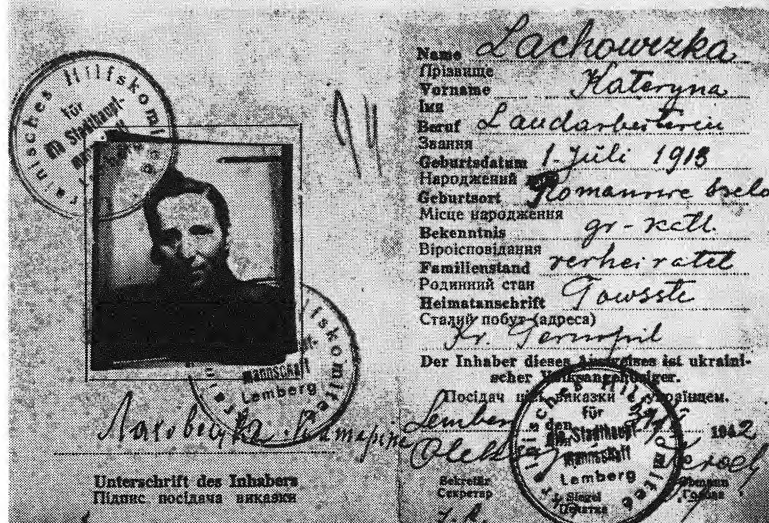 Ukrainisches Hilfskomitee
für
die Stadthaupt-
mannschaft
Lemberg
Unterschrift des Inhabers
Підпис посідача виказки
Name Lachowrzka
Прізвище
Vorname Kateryna
Імя
Beruf Landarbeiterin
Звання
Geburtsdatum 1. Juli 1913
Народжений
Geburtsort Romanowe Sselo
Місце народження
Bekenntnis gr-katl.
Віроісповідання
Familienstand verheiratet
Родинний стан
Heimatanschrift Towsste
Сталий побут (адреса)
Kr. Ternopil
Der Inhaber dieses Ausweises ist ukraini-
scher Volksangehöriger.
Посідач цієї виказки є українцем.
Lemberg den 1942
für
die Stadthaupt-
mannschaft
Lemberg
Sekretär
Секретар
Siegel
Печатка
Obmann
Голова